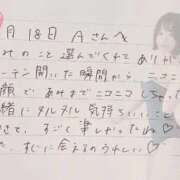 月18日 Aさんへ
みのこと選んでくれてありが
ーテン開いた瞬間から ニコニコ
顔で あみまでニコニコしちゃった
緒に ヌルヌル 気持ちいいこと
きて、すごく楽しかったね♡
た、すぐに会えるのうれしい♡